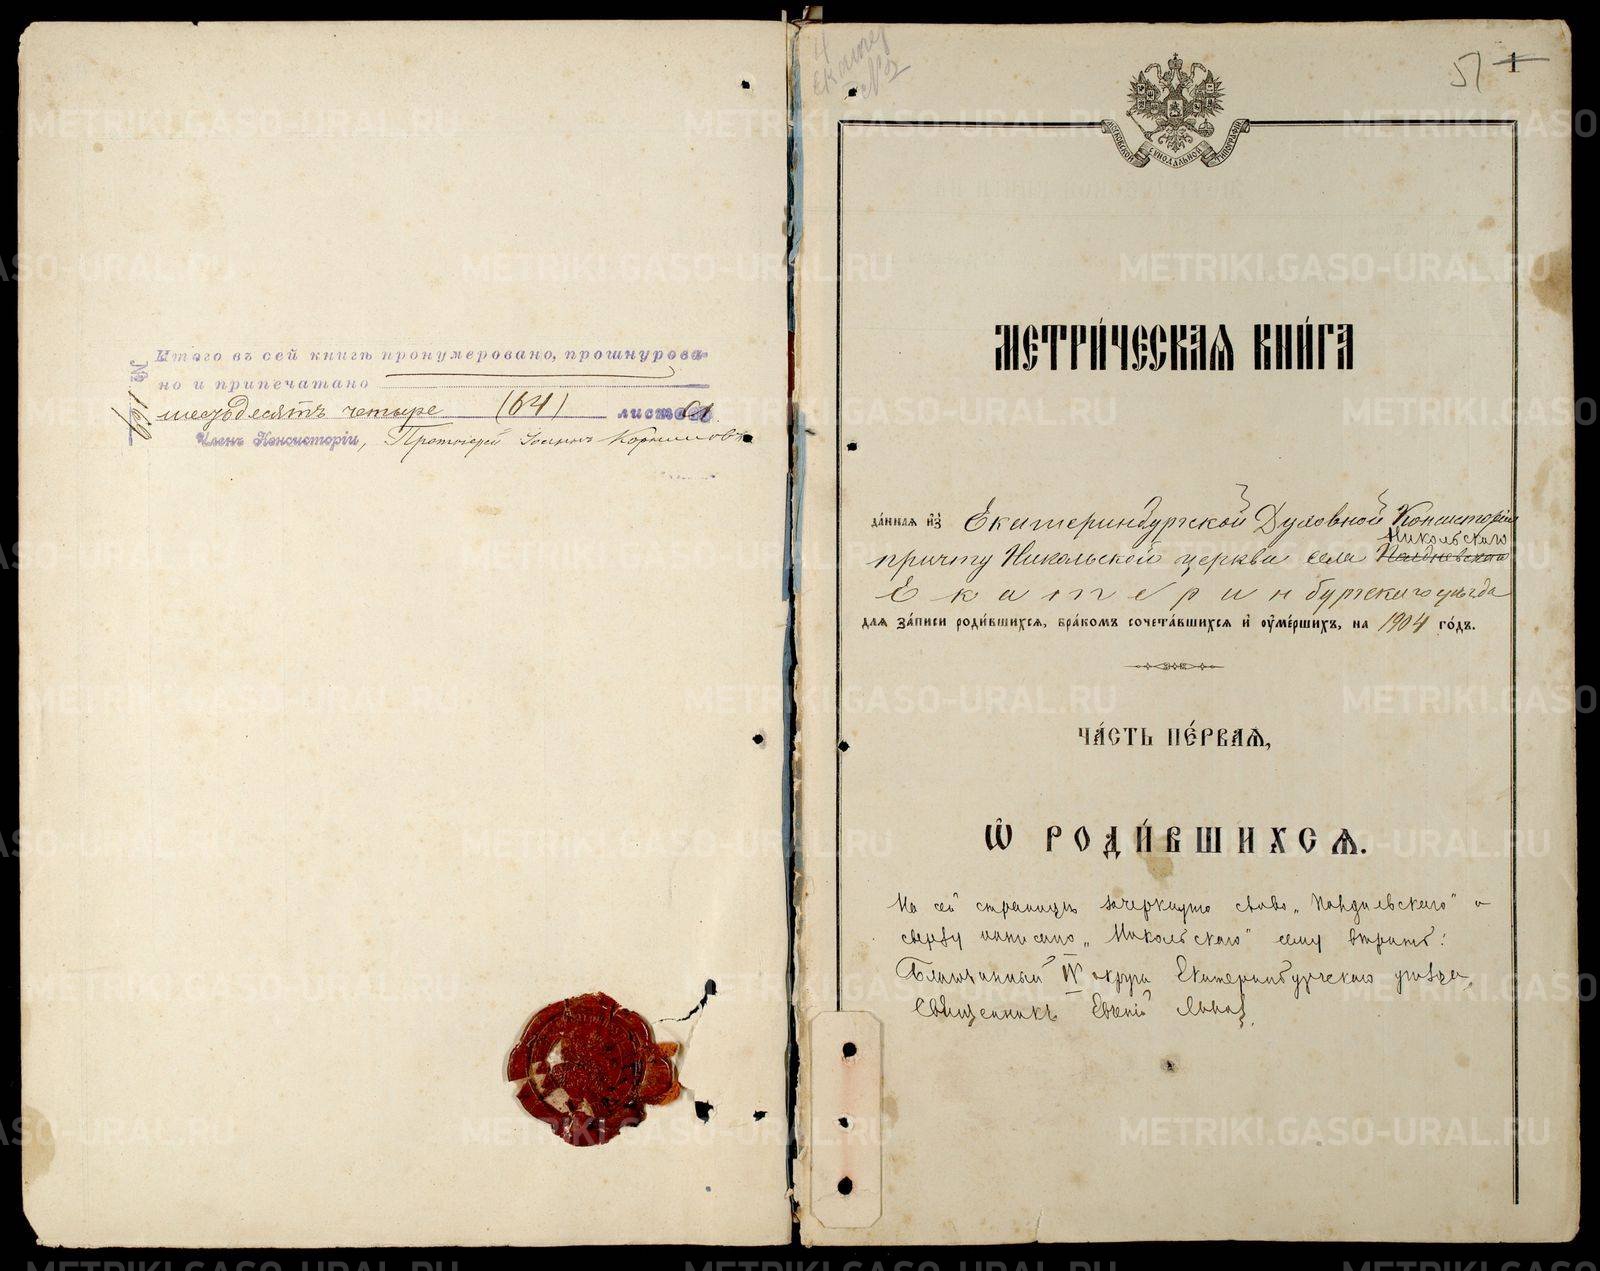 Итого въ сей книгѣ пронумеровано, прошнурова-
но и припечатано
шестьдесятъ четыре (64) листовъ
Членъ Консисторіи, Протоіерей Іоаннъ
№ 169
4
Екатер
51 1
МОСКОВСКОЙ СѴНОДАЛЬНОЙ ТИПОГРАФІИ
МЕТРИ́ЧЕСКАѦ КНИ́ГА
да́ннаѧ и҆з̾ Екатеринбургской Духовной Консисторіи
Никольскаго
причту Никольской церкви села
Екатеринбургскаго уѣзда
длѧ за́писи роди́вшихсѧ, бра́комъ сочета́вшихсѧ и҆ оумѐршихъ, на 1904 го́дъ.
ЧА́СТЬ ПЕ́РВАѦ,
Ѡ҆ РОДИ́ВШИХСѦ.
На сей страницѣ зачеркнуто слово и
сверху написано „Никольскаго" сему вѣрить:
Благочинный IV округа Екатеринбургскаго уѣзда,
Священникъ Евгеній
METRIKI.GASO-URAL.RU